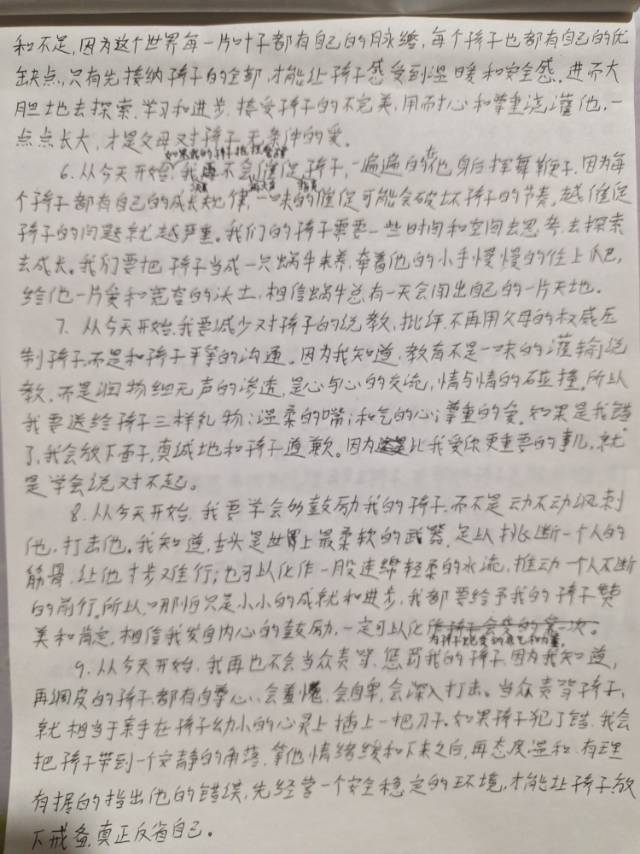 和不足,因为这个世界每一片叶子都有自己的脉络,每个孩子也都有自己的优
缺点,只有先接纳孩子的全部,才能让孩子感受到温暖和安全感,进而大
胆地去探索、学习和进步,接受孩子的不完美,用耐心和尊重浇灌他,一
点点长大,才是父母对孩子无条件的爱。
6.从今天开始,我不会催促孩子,一遍遍的在他身后挥舞鞭子,因为每
个孩子都有自己的成长规律,一味的催促可能会破坏孩子的节奏,越催促
孩子的问题就越严重。我们的孩子需要一些时间和空间去思考、去探索
去成长。我们要把孩子当成一只蜗牛来养,牵着他的小手慢慢的往上爬,
给他一片爱和宽容的沃土,相信蜗牛总有一天会闯出自己的一片天地。
7.从今天开始,我要减少对孩子的说教、批评,不再用父母的权威压
制孩子,而是和孩子平等的沟通。因为我知道,教育不是一味的灌输说
教,而是润物细无声的渗透,是心与心的交流,情与情的碰撞,所以
我要送给孩子三样礼物:温柔的嘴;和气的心;尊重的爱。如果是我错
了,我会放下面子,真诚地和孩子道歉。因为比我爱你更重要的事儿,就
是学会说对不起。
8.从今天开始,我要学会多鼓励我的孩子,而不是动不动讽刺
他,打击他。我知道,舌头是世界上最柔软的武器,足以挑断一个人的
筋骨,让他寸步难行;也可以化作一股连绵轻柔的水流,推动一个人不断
的前行,所以,哪怕只是小小的成就和进步,我都要给予我的孩子赞
美和肯定,相信我发自内心的鼓励,一定可以化
9.从今天开始,我再也不会当众责骂、惩罚我的孩子,因为我知道,
再调皮的孩子,都有自尊心,会羞愧,会自卑,会深入打击。当众责骂孩子,
就相当于亲手在孩子幼小的心灵上插上一把刀子,如果孩子犯了错,我会
把孩子带到一个安静的角落,等他情绪缓和下来之后,再态度温和、有理
有据的指出他的错误,先经营一个安全稳定的环境,才能让孩子放
下戒备,真正反省自己。